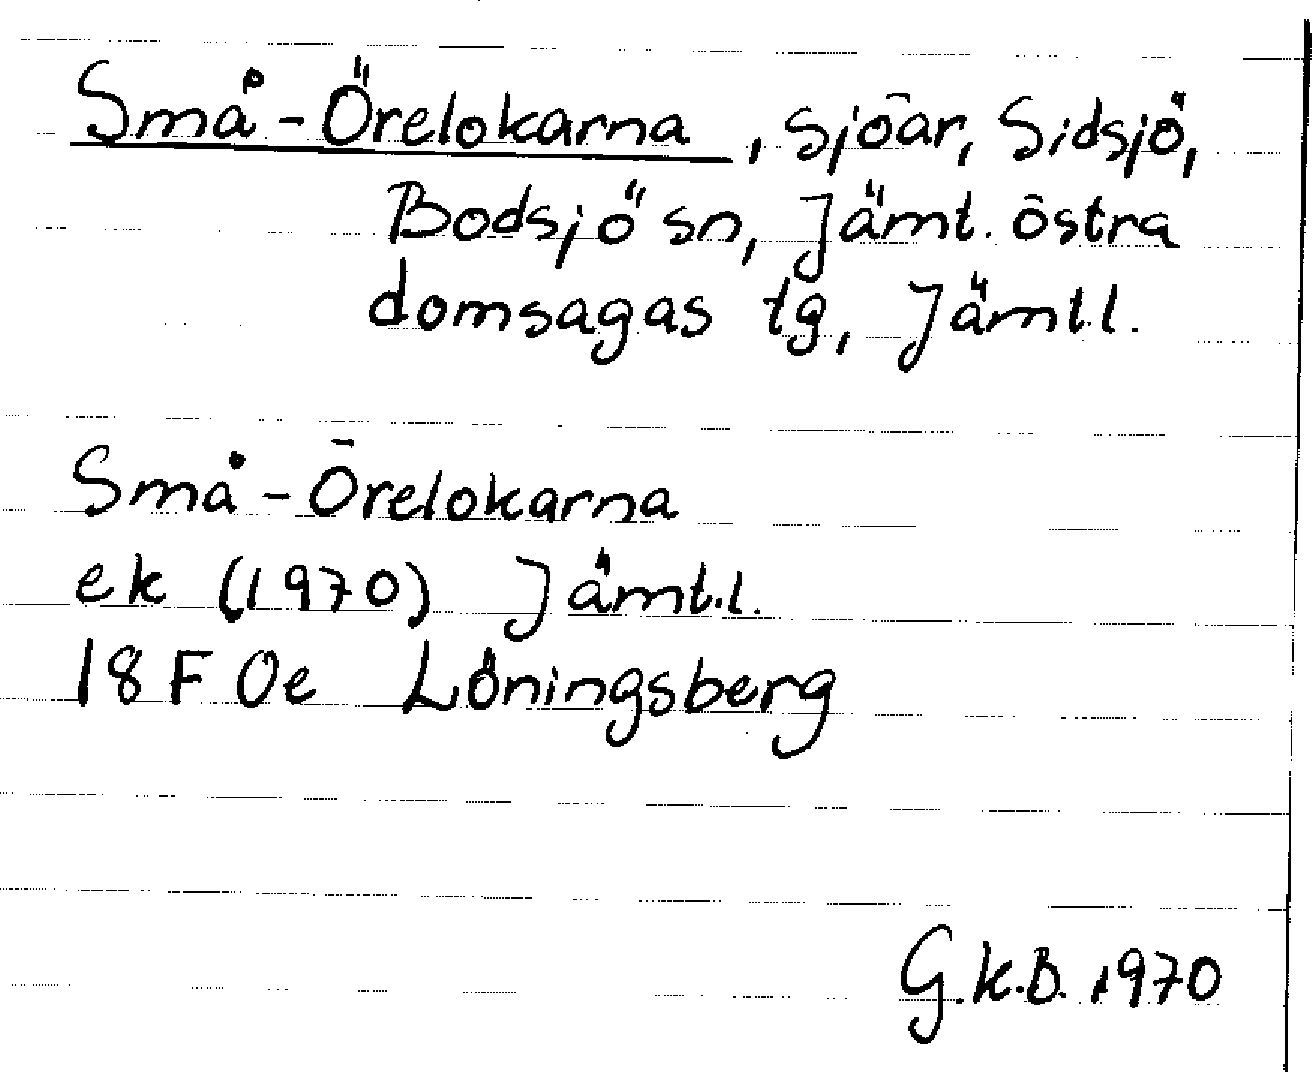 Små-Örelokarna, sjöar, Sidsjö,
Bodsjö sn, Jämt. östra
domsagas tg, Jämtl.
Små-Örelokarna
ek (1970) Jämt.l.
18F 0e Löningsberg
G.K.B. 1970